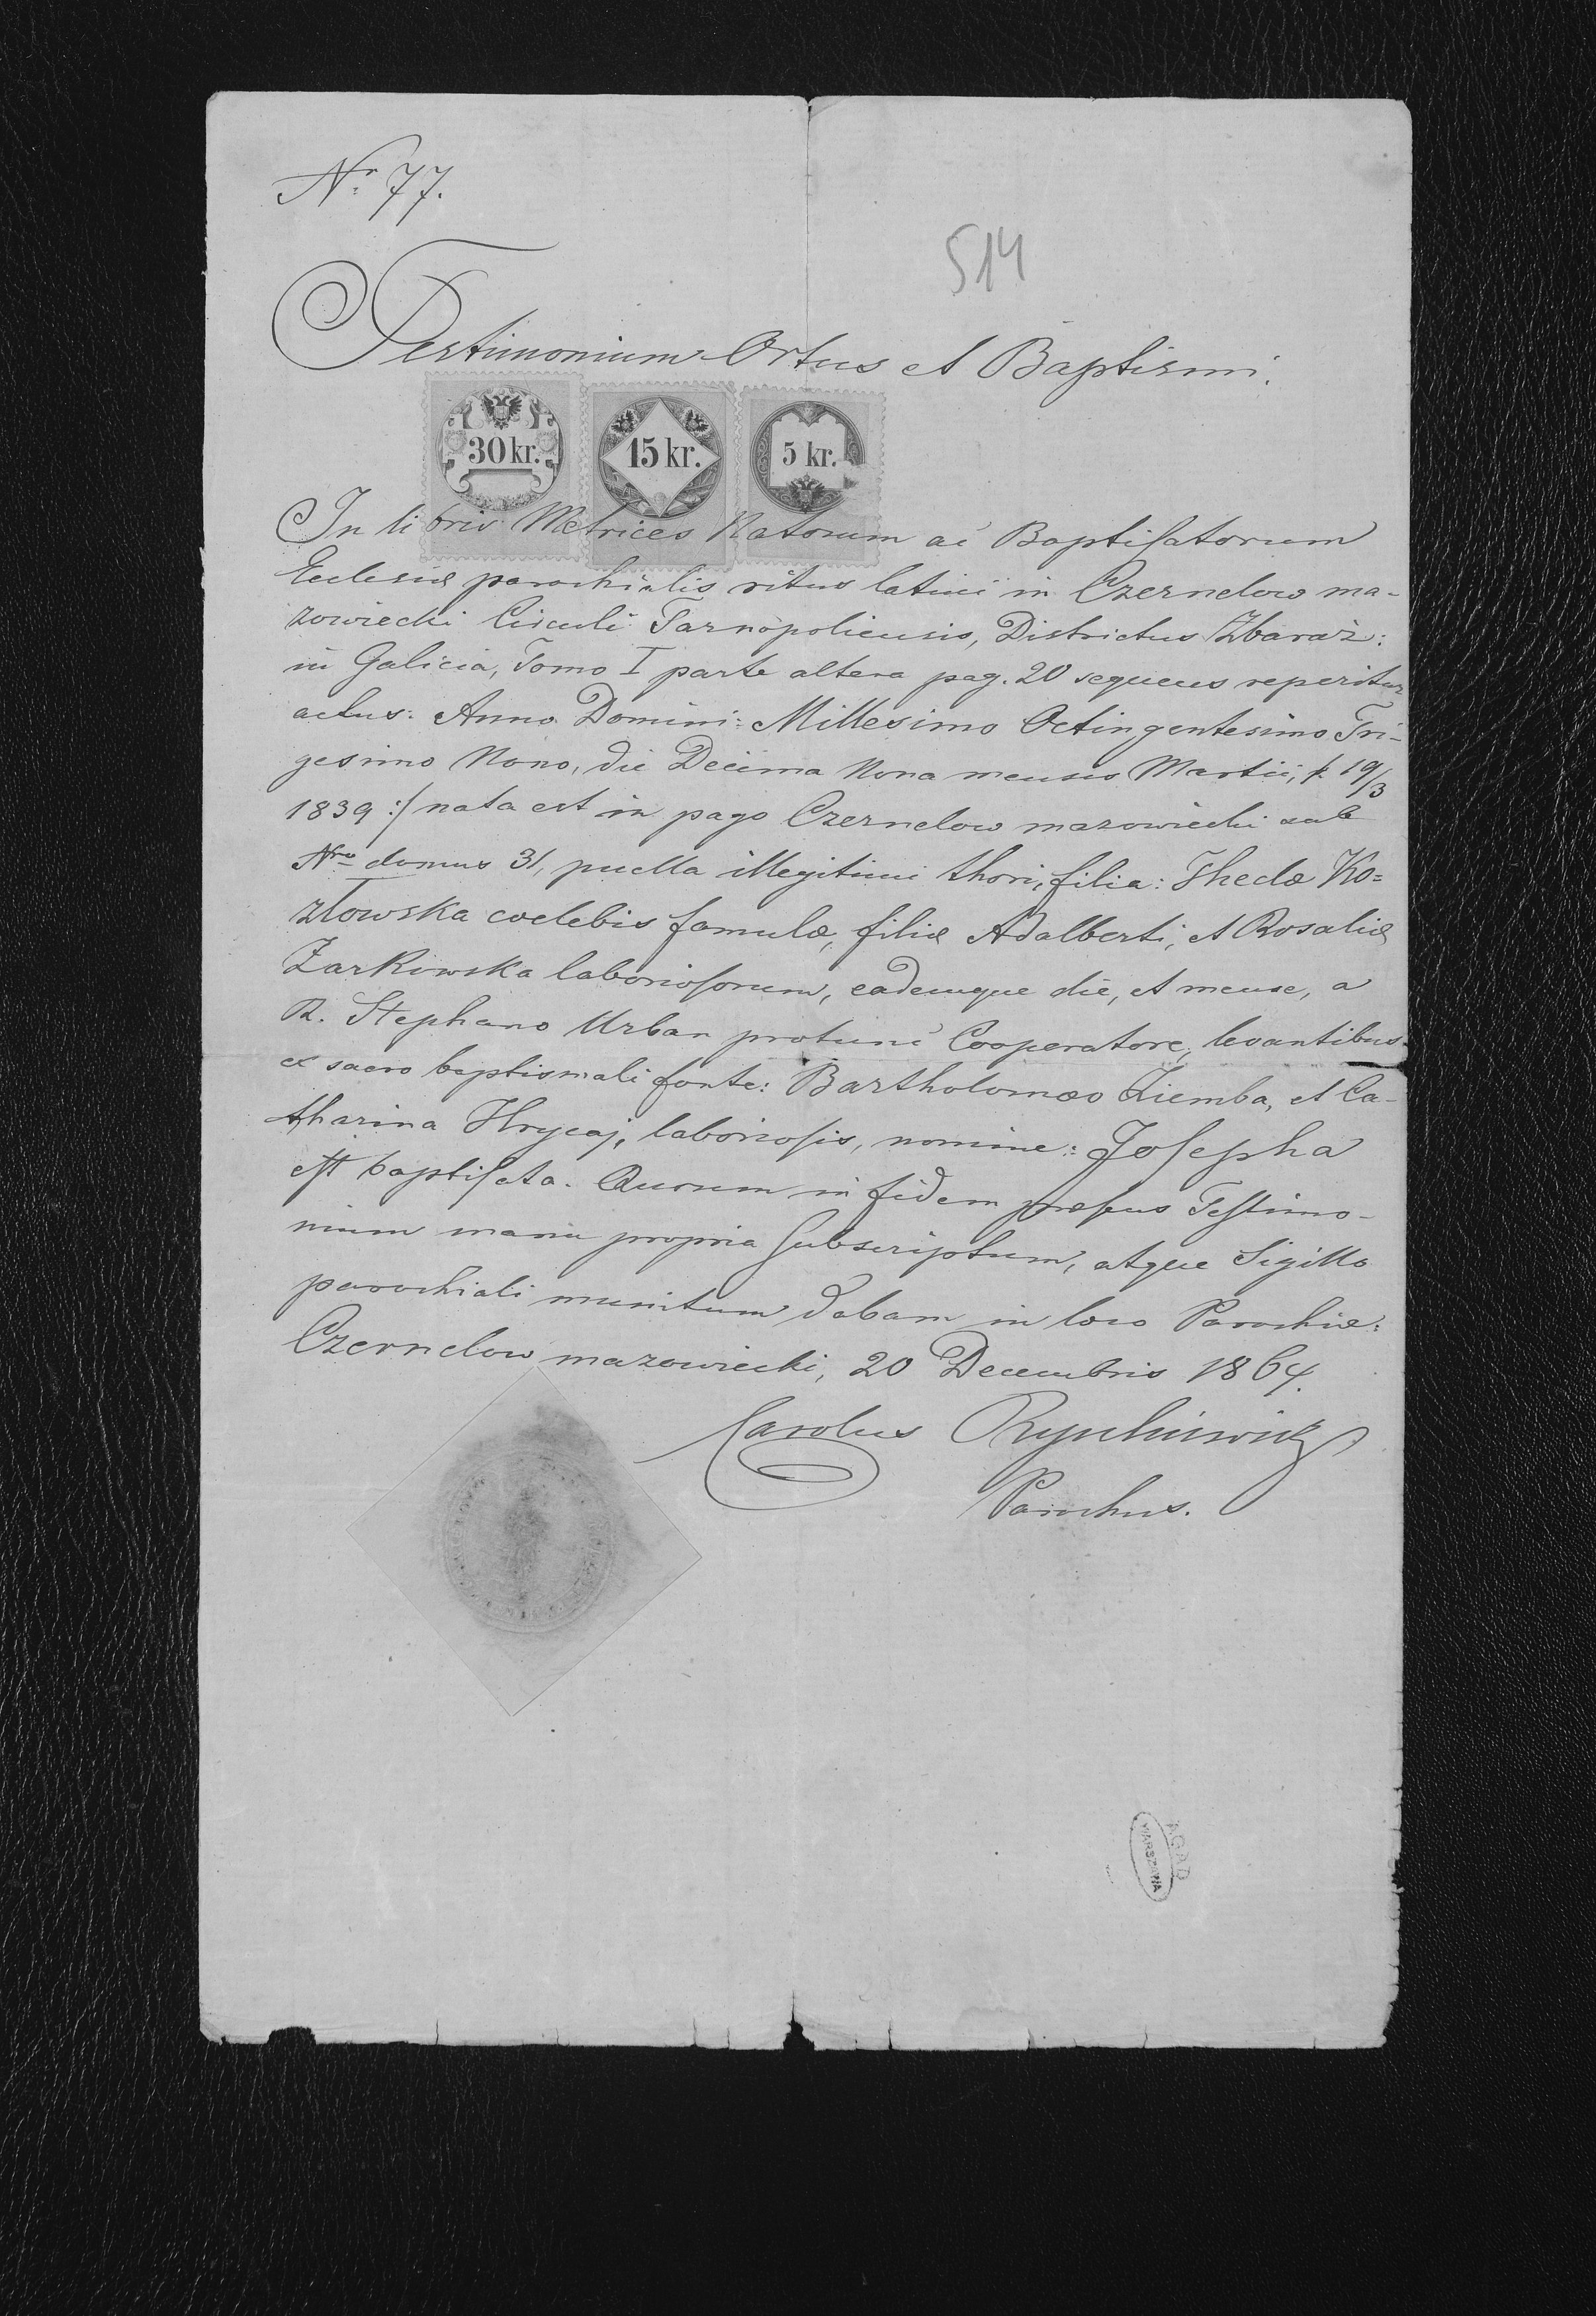 Nr 77.
514
Testimonium Ortus et Baptismi.
30 kr. 15 kr. 5 kr.
In libris Metrices Natorum ac Baptisatorum
Eclesiæ parochialis ritus latini in Czernelow ma-
zowiecki Circuli Tarnopoliensis, Districtus Zbaraż:
in Galicia, Tomo I parte altera pag. 20 sequens reperitur
actus: Anno Domini: Millesimo Octingentesimo Tri-
gesimo Nono, die Decima Nona mensis Martii, /: 19/3
1839 :/ nata est in pago Czernelow mazowiecki sub
Nro domus 31, puella illegitimi thori, filia: Theclæ Ko=
złowska coelebis famulæ, filiæ Adalberti, et Rosaliæ
Zarkowska laboriosorum, eademque die, et mense, a
R. Stephano Urban protunc Cooperatore, levantibus
ex sacro baptismali fonte: Bartholomæo Ziemba, et Ca-
tharina Hrycaj, laboriosis, nomine: Josepha
est baptisata. Quorum in fidem præsens Testimo-
nium manu propria subscriptum, atque Sigillo
parochiali munitum dabam in loco Parochiæ:
Czernelow mazowiecki, 20 Decembris 1864.
Carolus
Parochus.
AGAD
WARSZAWA